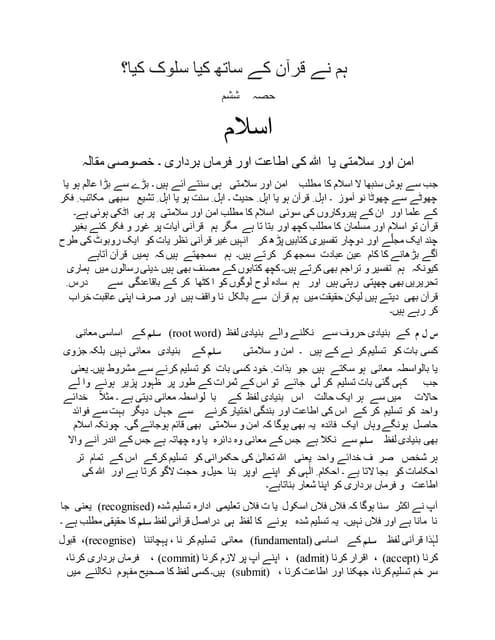 ہم نے قرآن کے ساتھ کیا سلوک کیا؟
حصہ ششم
اسلام
امن اور سلامتی یا اللہ کی اطاعت اور فرماں برداری ۔ خصوصی مقالہ
جب سے ہوش سنبھا لا اسلام کا مطلب امن اور سلامتی ہی سنتے آئے ہیں۔ بڑے سے بڑا عالم ہو یا
چھوٹے سے چھوٹا نو آموز ۔ اہل ِ قرآن ہو یا اہل ِ حدیث ۔ اہل ِ سنت ہو یا اہل ِ تشیع سبھی مکاتب ِ فکر
کے علما اور ان کے پیروکاروں کی سوئی اسلام کا مطلب امن اور سلامتی پر ہی اٹکی ہوئی ہے۔
قرآن تو اسلام اور مسلمان کا مطلب کچھ اور بتا تا ہے مگر ہم قرآنی آیات پر غور و فکر کئے بغیر
چند ایک مجلّے اور دوچار تفسیری کتابیں پڑھ کر انہیں غیر قرآنی نظر یات کو ایک روبوٹ کی طرح
آگے بڑھانے کا کام عین عبادت سمجھ کر کرتے ہیں۔ ہم سمجھتے ہیں کہ ہمیں قرآن آتاہے
کیونکہ ہم تفسیر و تراجم بھی کرتے ہیں۔کچھ کتابوں کے مصنف بھی ہیں دینی رسالوں میں ہماری
تحریریں بھی چھپتی رہتی ہیں اور ہم سادہ لوح لوگوں کو اکٹھا کر کے باقاعدگی سے درس ِ
قرآن بھی دیتے ہیں لیکن حقیقت میں ہم قرآن سے بالکل نا واقف ہیں اور صرف اپنی عاقبت خراب
کر رہے ہیں۔
س ل م کے بنیادی حروف سے نکلنے والے بنیادی لفظ (root word) سلم کے اساسی معانی
کسی بات کو تسلیم کر نے کے ہیں ۔ امن و سلامتی سلم کے بنیادی معانی نہیں بلکہ جزوی
یا بالواسطہ معانی ہو سکتے ہیں جو بذات ِ خود کسی بات کو تسلیم کرنے سے مشروط ہیں۔ یعنی
جب کہی گئی بات تسلیم کر لی جائے تو اس کے ثمرات کے طور پر ظہور پزیر ہونے وا لے
حالات میں سے ہر ایک حالت اس بنیادی لفظ کے با لواسطہ معانی دیتی ہے ۔ مثلاً خدائے
واحد کو تسلیم کر کے اس کی اطاعت اور بندگی اختیار کرنے سے جہاں دیگر بہت سے فوائد
حاصل ہونگے وہاں ایک فائدہ یہ بھی ہوگا کہ امن و سلامتی بھی قائم ہوجائے گی۔ چونکہ اسلام
بھی بنیادی لفظ سلم سے نکلا ہے جس کے معانی وہ دائرہ یا وہ چھاتہ ہے جس کے اندر آنے والا
ہر شخص صر ف خدائے واحد یعنی اللہ تعالیٰ کی حکمرانی کو تسلیم کرکے اس کے تمام تر
احکامات کو بجا لاتا ہے ۔ احکام ِ الٰہی کو اپنے اوپر بنا حیل و حجت لاگو کرتا ہے اور اللہ کی
اطاعت و فرماں برداری کو اپنا شعار بناتاہے۔
آپ نے اکثر سنا ہوگا کہ فلاں فلاں اسکول یا ت فلاں تعلیمی ادارہ تسلیم شدہ (recognised) یعنی جا
نا مانا ہے اور فلاں نہیں۔ یہ تسلیم شدہ ہونے کا لفظ ہی دراصل قرآنی لفظ سلم کا حقیقی مطلب ہے ۔
لہٰذا قرآنی لفظ سلم کے اساسی (fundamental) معانی تسلیم کر نا ، پہچاننا (recognise)، قبول
کرنا (accept) ، اقرار کرنا (admit) ، اپنے آپ پر لازم کرنا (commit) ، فرماں برداری کرنا،
سر ِ خم تسلیم کرنا، جھکنا اور اطاعت کرنا ، (submit) ہیں۔کسی لفظ کا صحیح مفہوم نکالنے میں